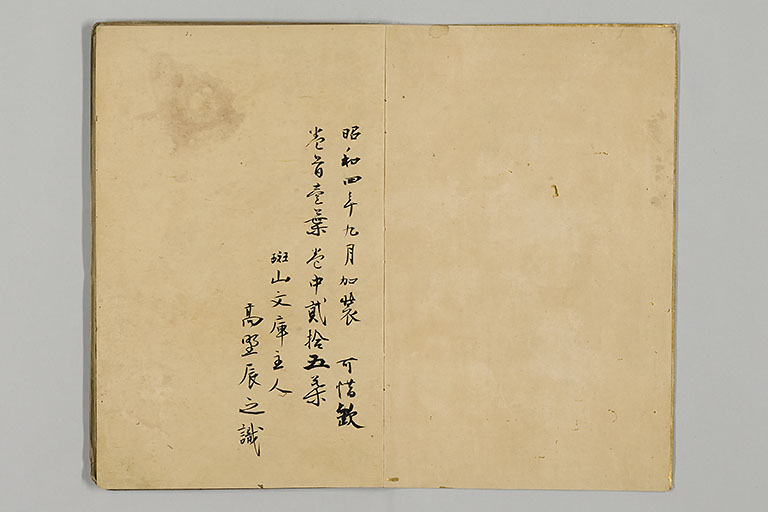 昭和四年九月加装 可惜欠
巻首壱葉巻中貳拾五葉
斑山文庫主人
高野辰之識